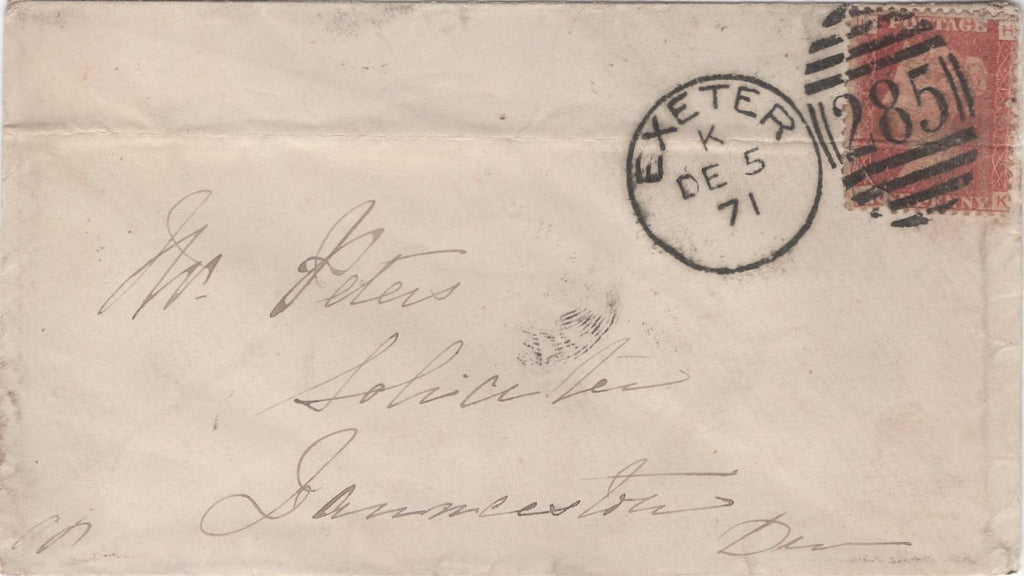 POSTAGE
285
K
EXETER
K
DE 5
71
Mr. Peters
Solicitor
Launceston